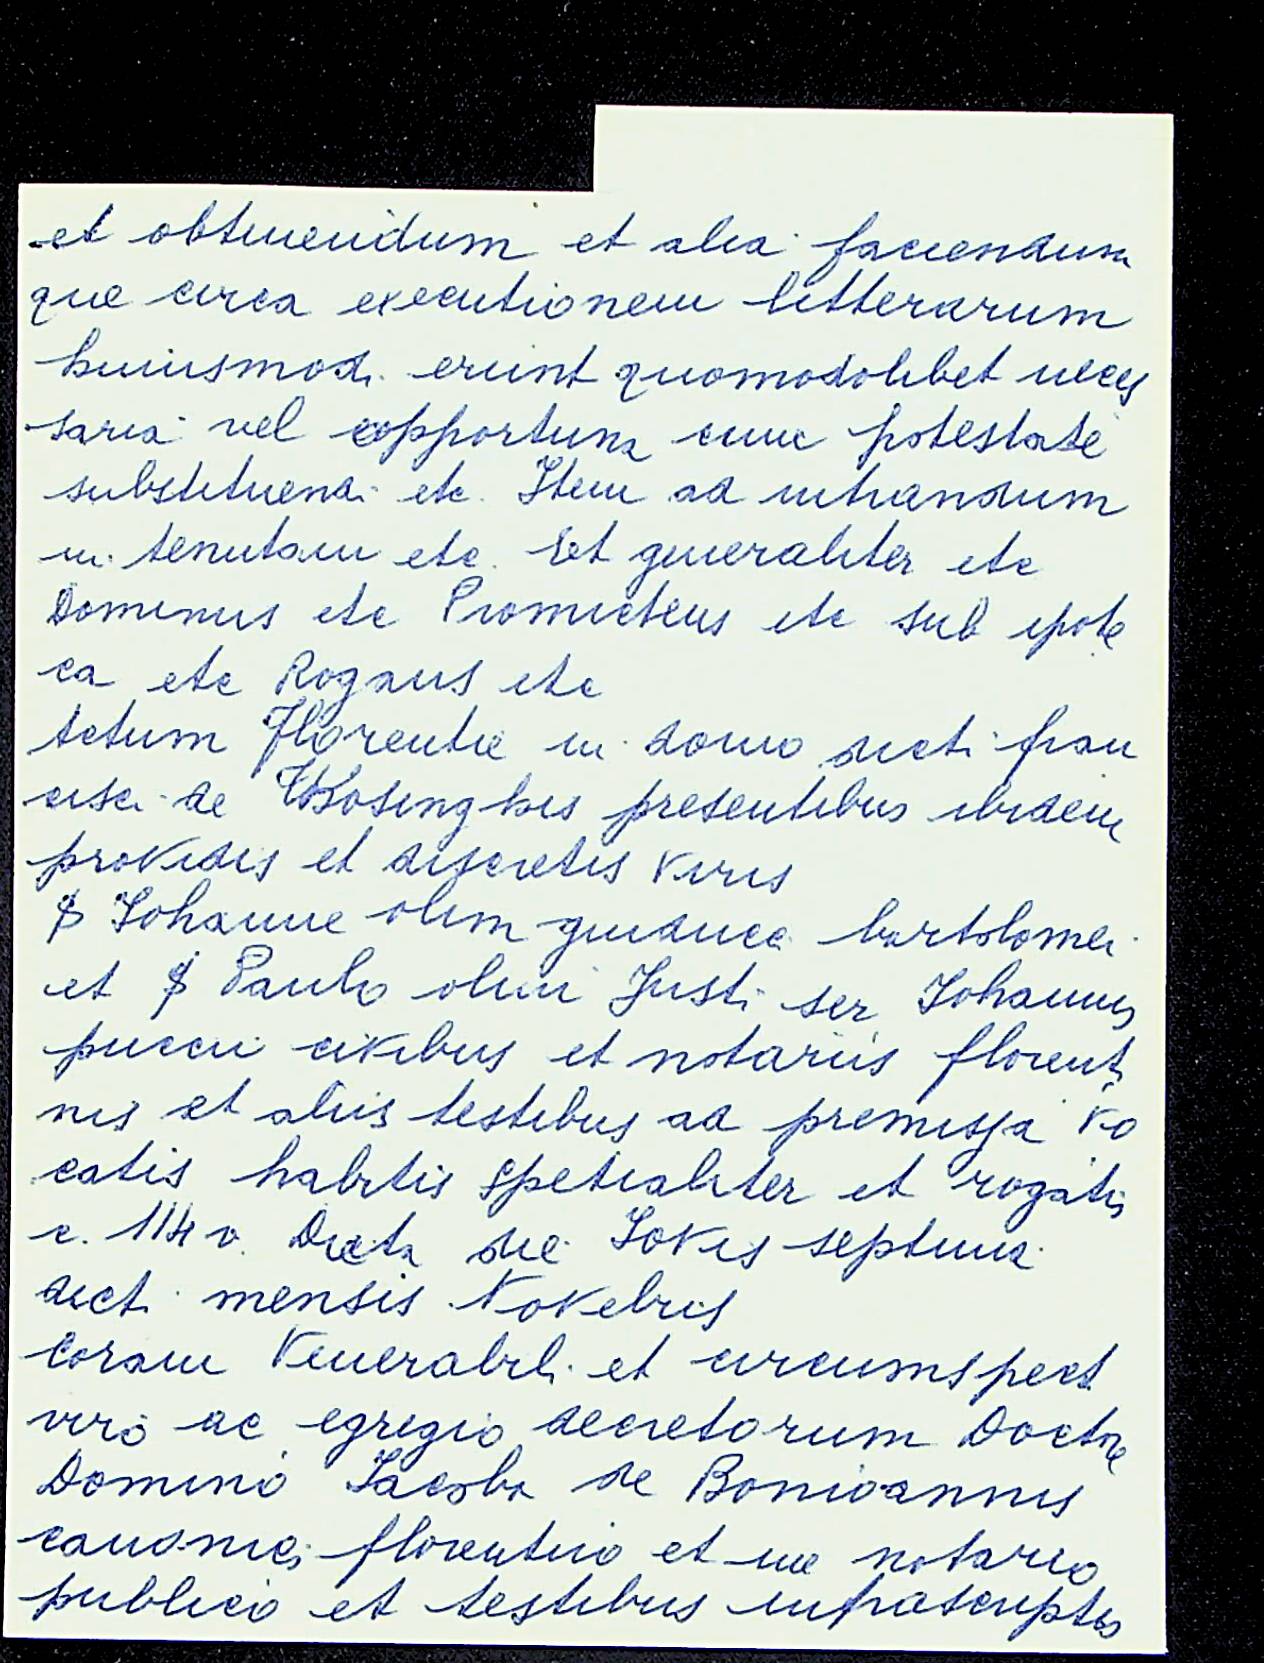 et obtinendum et alia faciendum
que circa executionem litterarum
huiusmodi erunt quomodolibet neces
saria vel opportuna cum potestate
substituendi etc. Item ad intrandum
in tenutam etc. Et generaliter etc
Dominus etc Promictens etc sub ipote
ca etc Rogans etc
Actum Florentie in domo dicti fran
cisci de Tosinghis presentibus ibidem
providis et discretis viris
S Iohanne olim guiducci bartolomei
et S Paulo olim Justi ser Iohannis
puccii civibus et notariis florenti
nis et aliis testibus ad premissa vo
catis habitis spetialiter et rogatis
c. 114 v. Dicta die Iovis septima
dicti mensis Novebris
Coram Venerabili et circumspecto
viro ac egregio decretorum Doctore
Domino Iacobo de Bonioannis
canonico florentino et me notario
publico et testibus infrascriptis